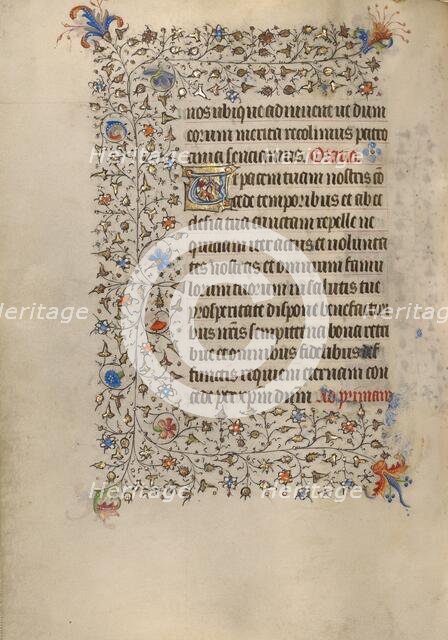 nos ubique adiuuent ut dum
eorum merita recolimus patro
cinia senciamus. Oratio
Et pacem tuam nostris cō
cede temporibus et ab ec
clesia tua cunctam repelle ne
quiciam iter actus et volunta
tes nostras et omnium famu
lorum tuorum in salutis tue
prosperitate dispone benefactori
bus nr̄is sempiterna bona retri
bue et omnibus fidelibus def
functis requiem eternam con
cede per xp̄m dn̄m Ad primam
Heritage
Heritage
Heritage
Heritage
Heritage
Heritage
©